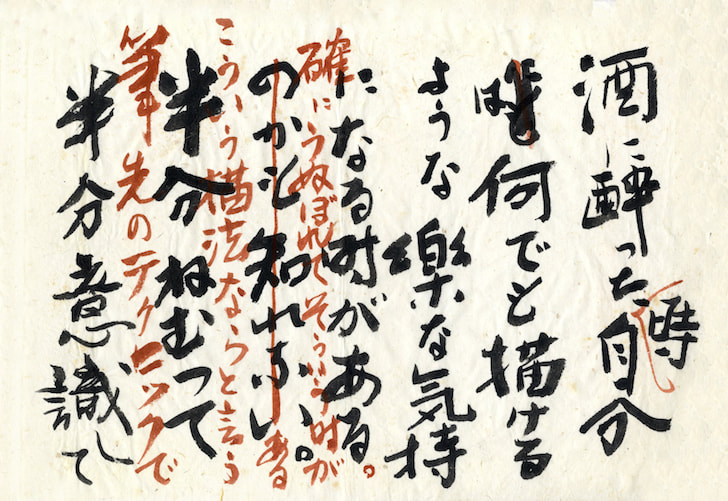 酒に酔った自分
時
は何でも描ける
ような樂な気持
になる時がある。
確にうぬぼれてそういう時が
ある
のかも知れない。
こういう描法ならと言う
半分ねむって
筆先のテクニックで
半分意識して